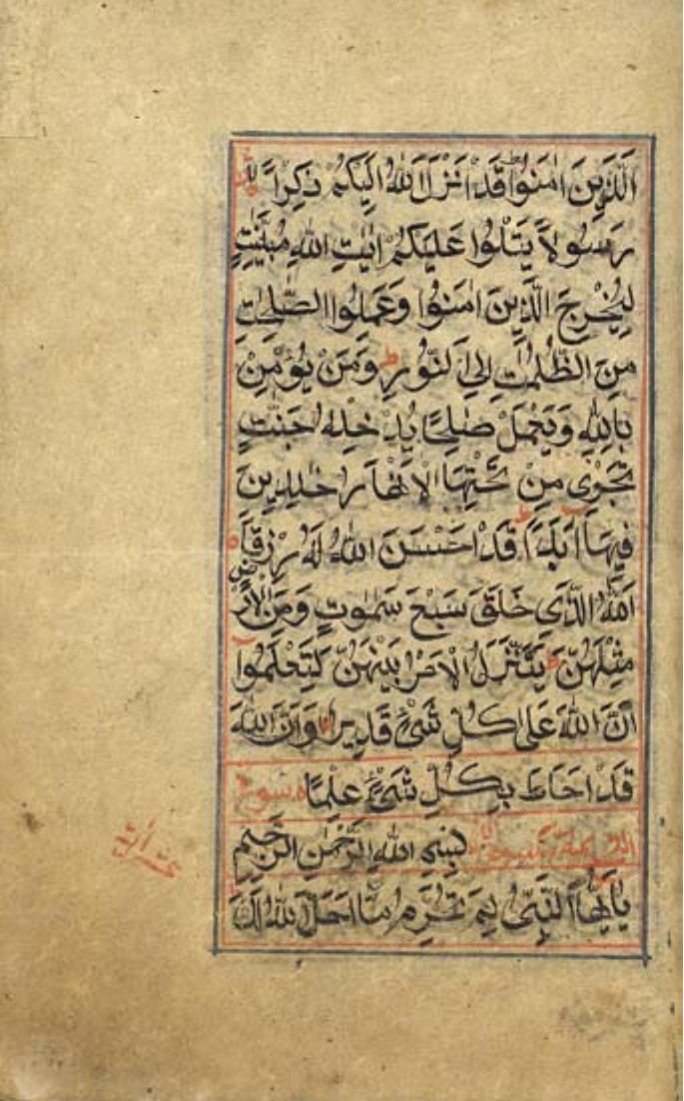 الَّذِينَ اٰمَنُوا قَدْ اَنْزَلَ اللّٰهُ اِلَيْكُمْ ذِكْرًا
رَسُولاً يَتْلُوا عَلَيْكُمْ اٰيٰتِ اللّٰهِ مُبَيِّنٰتٍ
لِيُخْرِجَ الَّذِينَ اٰمَنُوا وَعَمِلُوا الصّٰلِحٰتِ
مِنَ الظُّلُمٰتِ اِلَى النُّورِ ط وَمَنْ يُؤْمِنْ
بِاللّٰهِ وَيَعْمَلْ صَالِحًا يُدْخِلْهُ جَنّٰتٍ
تَجْرِى مِنْ تَحْتِهَا الْاَنْهَارُ خٰلِدِينَ
فِيهَا اَبَدًا ط قَدْ اَحْسَنَ اللّٰهُ لَهُ رِزْقًا
اَللّٰهُ الَّذِى خَلَقَ سَبْعَ سَمٰوٰتٍ وَمِنَ الْاَرْضِ
مِثْلَهُنَّ ط يَتَنَزَّلُ الْاَمْرُ بَيْنَهُنَّ لِتَعْلَمُوا
اَنَّ اللّٰهَ عَلٰى كُلِّ شَىْءٍ قَدِيرٌ وَاَنَّ اللّٰهَ
قَدْ اَحَاطَ بِكُلِّ شَىْءٍ عِلْمًا سورة
بِسْمِ اللّٰهِ الرَّحْمٰنِ الرَّحِيمِ
يٰاَيُّهَا النَّبِىُّ لِمَ تُحَرِّمُ مَا اَحَلَّ اللّٰهُ لَكَ